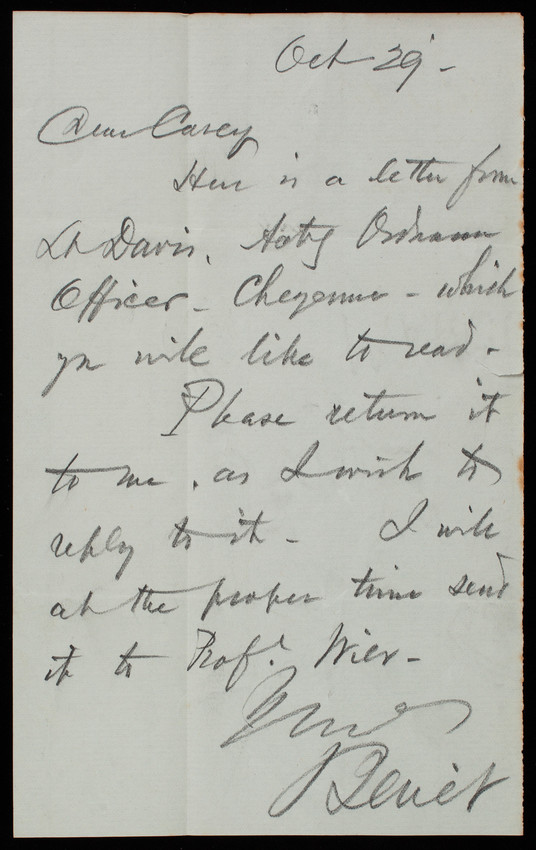 Oct 29 -
Dear Casey
Here is a letter from
Lt Davis, Actg Ordnance
Officer - Cheyenne - which
you will like to read -
Please return it
to me, as I wish to
reply to it - I will
at the proper time send
it to Prof. Wier -
Yours
Benét